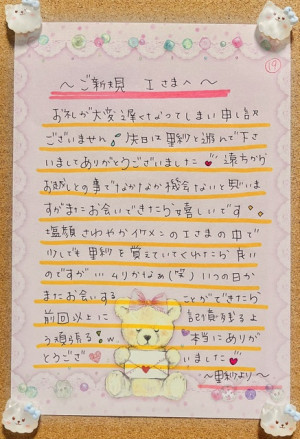 19
～ご新規 Iさまへ～
お礼が大変遅くなってしまい申し訳
ございません💦先日は里紗と遊んで下さ
いましてありがとうございました♥遠方から
お越しとの事でなかなか機会ないと思いま
すがまたお会いできたら嬉しいです
塩顔さわやかイケメンのIさまの中で
少しでも里紗を覚えていてくれたら良い
のですが…ムリかなぁ(笑)いつの日か
またお会いすることができたら
前回以上に記憶残るよ
う頑張る!w 本当にありが
とうございました♥
～里紗より～